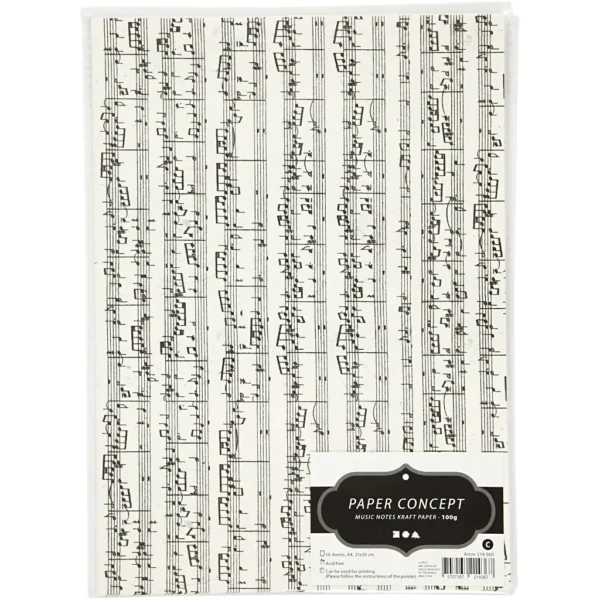 PAPER CONCEPT
MUSIC NOTES KRAFT PAPER - 100g
10 sheets, A4, 21x30 cm
Acid free
Can be used for printing
(Please follow the instructions of the printer)
C